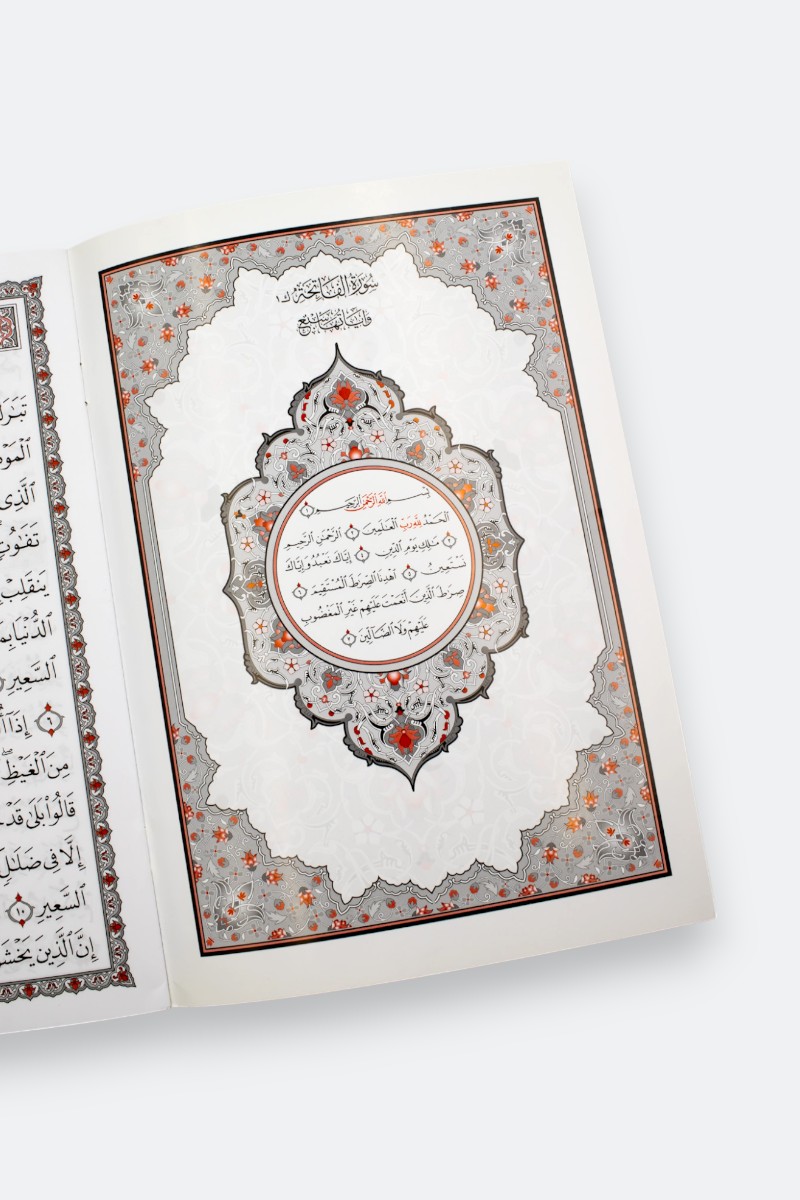 سُورَةُ الفَاتِحَة
وَآيَاتُهَا سَبْعٌ
بِسْمِ ٱللَّهِ ٱلرَّحْمَٰنِ ٱلرَّحِيمِ ١
ٱلْحَمْدُ لِلَّهِ رَبِّ ٱلْعَٰلَمِينَ ٢ ٱلرَّحْمَٰنِ ٱلرَّحِيمِ
٣ مَٰلِكِ يَوْمِ ٱلدِّينِ ٤ إِيَّاكَ نَعْبُدُ وَإِيَّاكَ
نَسْتَعِينُ ٥ ٱهْدِنَا ٱلصِّرَٰطَ ٱلْمُسْتَقِيمَ ٦
صِرَٰطَ ٱلَّذِينَ أَنْعَمْتَ عَلَيْهِمْ غَيْرِ ٱلْمَغْضُوبِ
عَلَيْهِمْ وَلَا ٱلضَّآلِّينَ ٧
تَبَٰرَكَ
ٱلْمَوْ
ٱلَّذِى
تَفَٰوُتٍ
يَنقَلِبْ
ٱلدُّنْيَا بِمَ
ٱلسَّعِيرِ
٦ إِذَآ أُ
مِنَ ٱلْغَيْظِ ۖ
قَالُوا۟ بَلَىٰ قَدْ
إِلَّا فِى ضَلَٰلٍ
ٱلسَّعِيرِ ١٠
إِنَّ ٱلَّذِينَ يَخْشَوْ